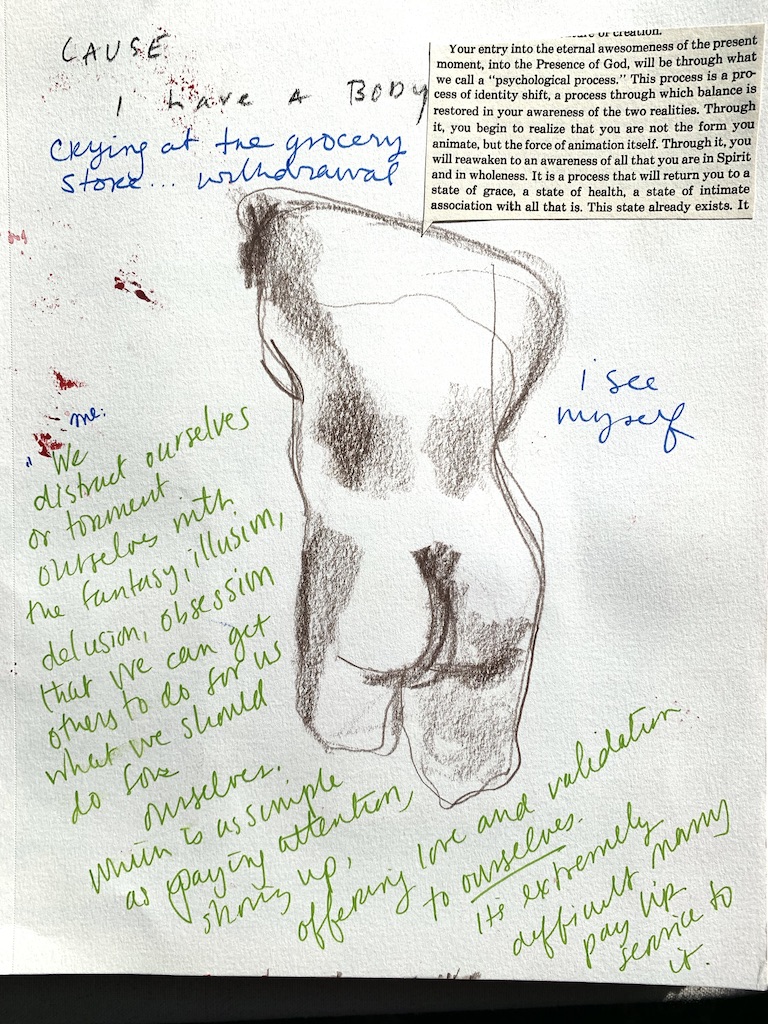 CAUSE
I HAVE A BODY
Crying at the grocery
store... withdrawal
of creation.
Your entry into the eternal awesomeness of the present
moment, into the Presence of God, will be through what
we call a "psychological process." This process is a pro-
cess of identity shift, a process through which balance is
restored in your awareness of the two realities. Through
it, you begin to realize that you are not the form you
animate, but the force of animation itself. Through it, you
will reawaken to an awareness of all that you are in Spirit
and in wholeness. It is a process that will return you to a
state of grace, a state of health, a state of intimate
association with all that is. This state already exists. It
i see
myself
me:
"We
distract ourselves
or torment
ourselves with
the fantasy, illusion,
delusion, obsession
that we can get
others to do for us
what we should
do for
ourselves.
which is as simple
as paying attention,
showing up,
offering love and validation
to ourselves.
Its extremely
difficult many
pay lip
service to
it.